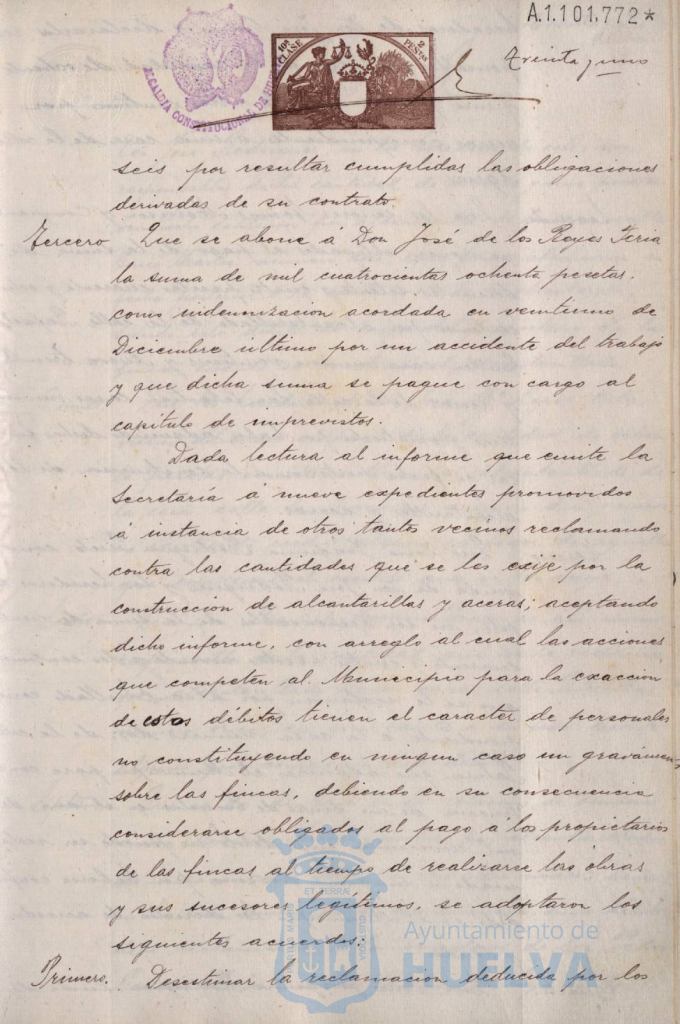 A.1.101.772*
10ª CLASE
2 PESETAS
ALCALDIA CONSTITUCIONAL DE HUELVA
Treinta y uno
seis por resultar cumplidas las obligaciones
derivadas de su contrato.
Tercero Que se abone á Don José de los Reyes Feria
la suma de mil cuatrocientas ochenta pesetas.
como indemnizacion acordada en veintiuno de
Diciembre último por un accidente del trabajo
y que dicha suma se pague con cargo al
capítulo de imprevistos.
Dada lectura al informe que emite la
Secretaría á nueve expedientes promovidos
á instancia de otros tantos vecinos reclamando
contra las cantidades que se les exije por la
construccion de alcantarillas y aceras; aceptando
dicho informe, con arreglo al cual las acciones
que competen al Municipio para la exaccion
de estos débitos tienen el caracter de personales
no constituyendo en ningun caso un gravámen
sobre las fincas, debiendo en su consecuencia
considerarse obligados al pago á los propietarios
de las fincas al tiempo de realizarse las obras
y sus sucesores legítimos, se adoptaron los
siguientes acuerdos:
Primero. Desestimar la reclamacion deducida por los
Ayuntamiento de
HUELVA